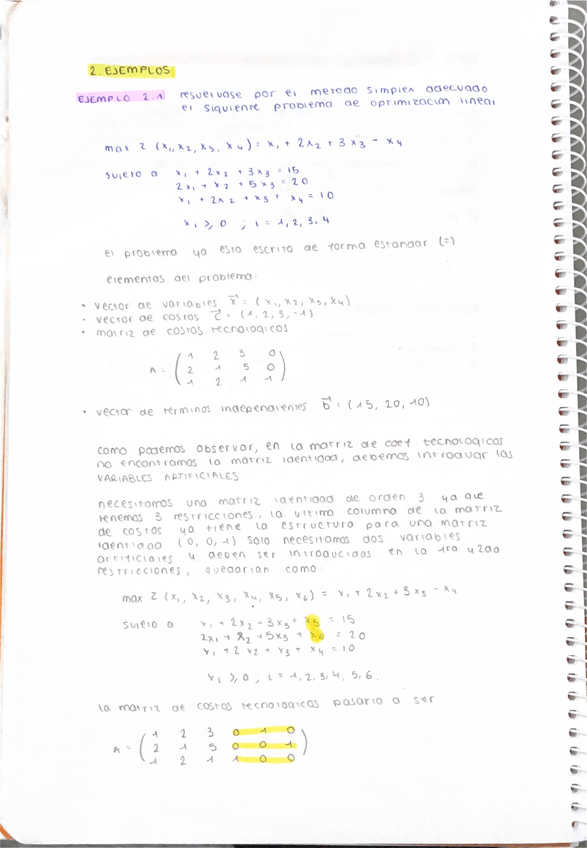 2. EJEMPLOS
EJEMPLO 2.1 resuelvase por el metodo simplex adecuado
el siguiente problema de optimizacion lineal
max z (x₁, x₂, x₃, x₄) = x₁ + 2x₂ + 3x₃ - x₄
sujeto a x₁ + 2x₂ + 3x₃ = 15
2x₁ + x₂ + 5x₃ = 20
x₁ + 2x₂ + x₃ + x₄ = 10
xᵢ ≥ 0 ; i = 1, 2, 3, 4
el problema ya esta escrito de forma estandar (=)
elementos del problema:
• vector de variables x⃗ = (x₁, x₂, x₃, x₄)
• vector de costos c⃗ = (1, 2, 3, -1)
• matriz de costos tecnologicos
1 2 3 0
A = ( 2 1 5 0 )
1 2 1 1
• vector de terminos independientes b⃗ = (15, 20, 10)
como podemos observar, en la matriz de coef tecnologicas
no encontramos la matriz identidad, debemos introducir las
VARIABLES ARTIFICIALES
necesitamos una matriz identidad de orden 3 ya que
tenemos 3 restricciones, la ultima columna de la matriz
de costos ya tiene la estructura para una matriz
identidad (0, 0, 1) solo necesitamos dos variables
artificiales y deben ser introducidas en la 1ra y 2da
restricciones, quedarian como:
max z (x₁, x₂, x₃, x₄, x₅, x₆) = x₁ + 2x₂ + 3x₃ - x₄
sujeto a x₁ + 2x₂ + 3x₃ + x₅ = 15
2x₁ + x₂ + 5x₃ + x₆ = 20
x₁ + 2x₂ + x₃ + x₄ = 10
xᵢ ≥ 0, i = 1, 2, 3, 4, 5, 6.
la matriz de costos tecnologicas pasaria a ser
1 2 3 0 1 0
A = ( 2 1 5 0 0 1 )
1 2 1 1 0 0